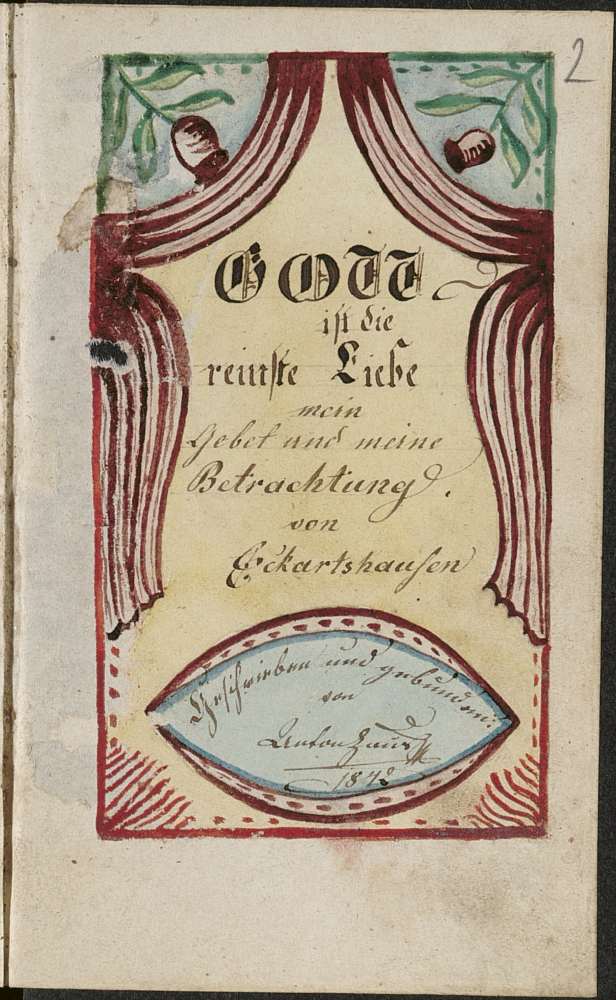 2
GOTT
ist die
reinste Liebe
mein
Gebet und meine
Betrachtung.
von
Eckartshausen
Geschrieben und gebunden:
von
Anton
1878